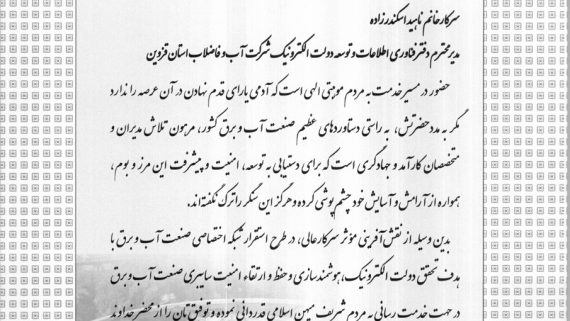 سرکار خانم ناهید اسکندرزاده
مدیر محترم دفتر فناوری اطلاعات و توسعه دولت الکترونیک شرکت آب و فاضلاب استان قزوین
حضور در مسیر خدمت به مردم موهبتی الهی است که آدمی یارای قدم نهادن در آن عرصه را ندارد
مگر به مدد حضرتش، به راستی دستاوردهای عظیم صنعت آب و برق کشور، مرهون تلاش مدیران و
متخصصان کارآمد و جهادگری است که برای دستیابی به توسعه، امنیت و پیشرفت این مرز و بوم،
همواره از آرامش و آسایش خود چشم پوشی کرده و هرگز این سنگر را ترک نگفته‌اند.
بدین وسیله از نقش آفرینی مؤثر سرکارعالی، در طرح استقرار شبکه اختصاصی صنعت آب و برق با
هدف تحقق دولت الکترونیک، هوشمندسازی و حفظ و ارتقاء امنیت سایبری صنعت آب و برق
در جهت خدمت رسانی به مردم شریف میهن اسلامی قدردانی نموده و توفیق‌تان را از محضر خداوند